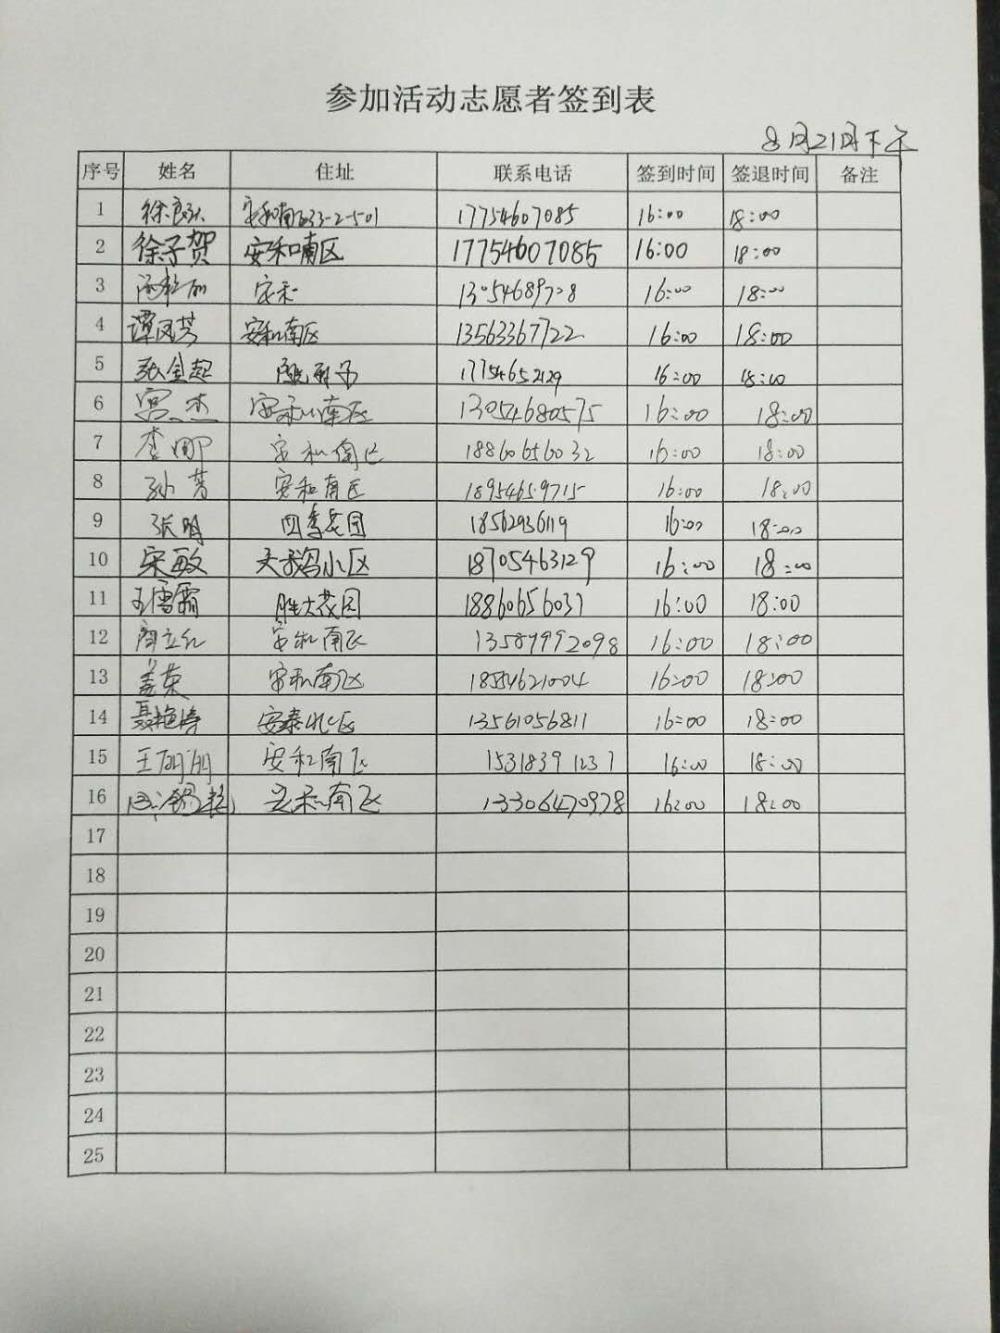 参加活动志愿者签到表
8月21日下午
序号 姓名 住址 联系电话 签到时间 签退时间 备注
1 安和南区33-2-501 17754607085 16:00 18:00
2 徐子贺 安和南区 17754607085 16:00 18:00
3 安和 16:00 18:00
4 谭凤芳 安和南区 13563367722 16:00 18:00
5 张金起 17754652129 16:00 18:00
6 宫杰 安和南区 13054680575 16:00 18:00
7 李娜 安和南区 18860656032 16:00 18:00
8 孙芳 安和南区 18954659715 16:00 18:00
9 张明 四季花园 18562936119 16:00 18:00
10 宋敏 天鹅小区 18705463129 16:00 18:00
11 王雪霜 胜大花园 18860656037 16:00 18:00
12 安和南区 13589992098 16:00 18:00
13 盖荣 安和南区 18554621004 16:00 18:00
14 聂艳涛 安泰北区 13561056811 16:00 18:00
15 王丽丽 安和南区 15318391237 16:00 18:00
16 安和南区 13306470978 16:00 18:00
17
18
19
20
21
22
23
24
25